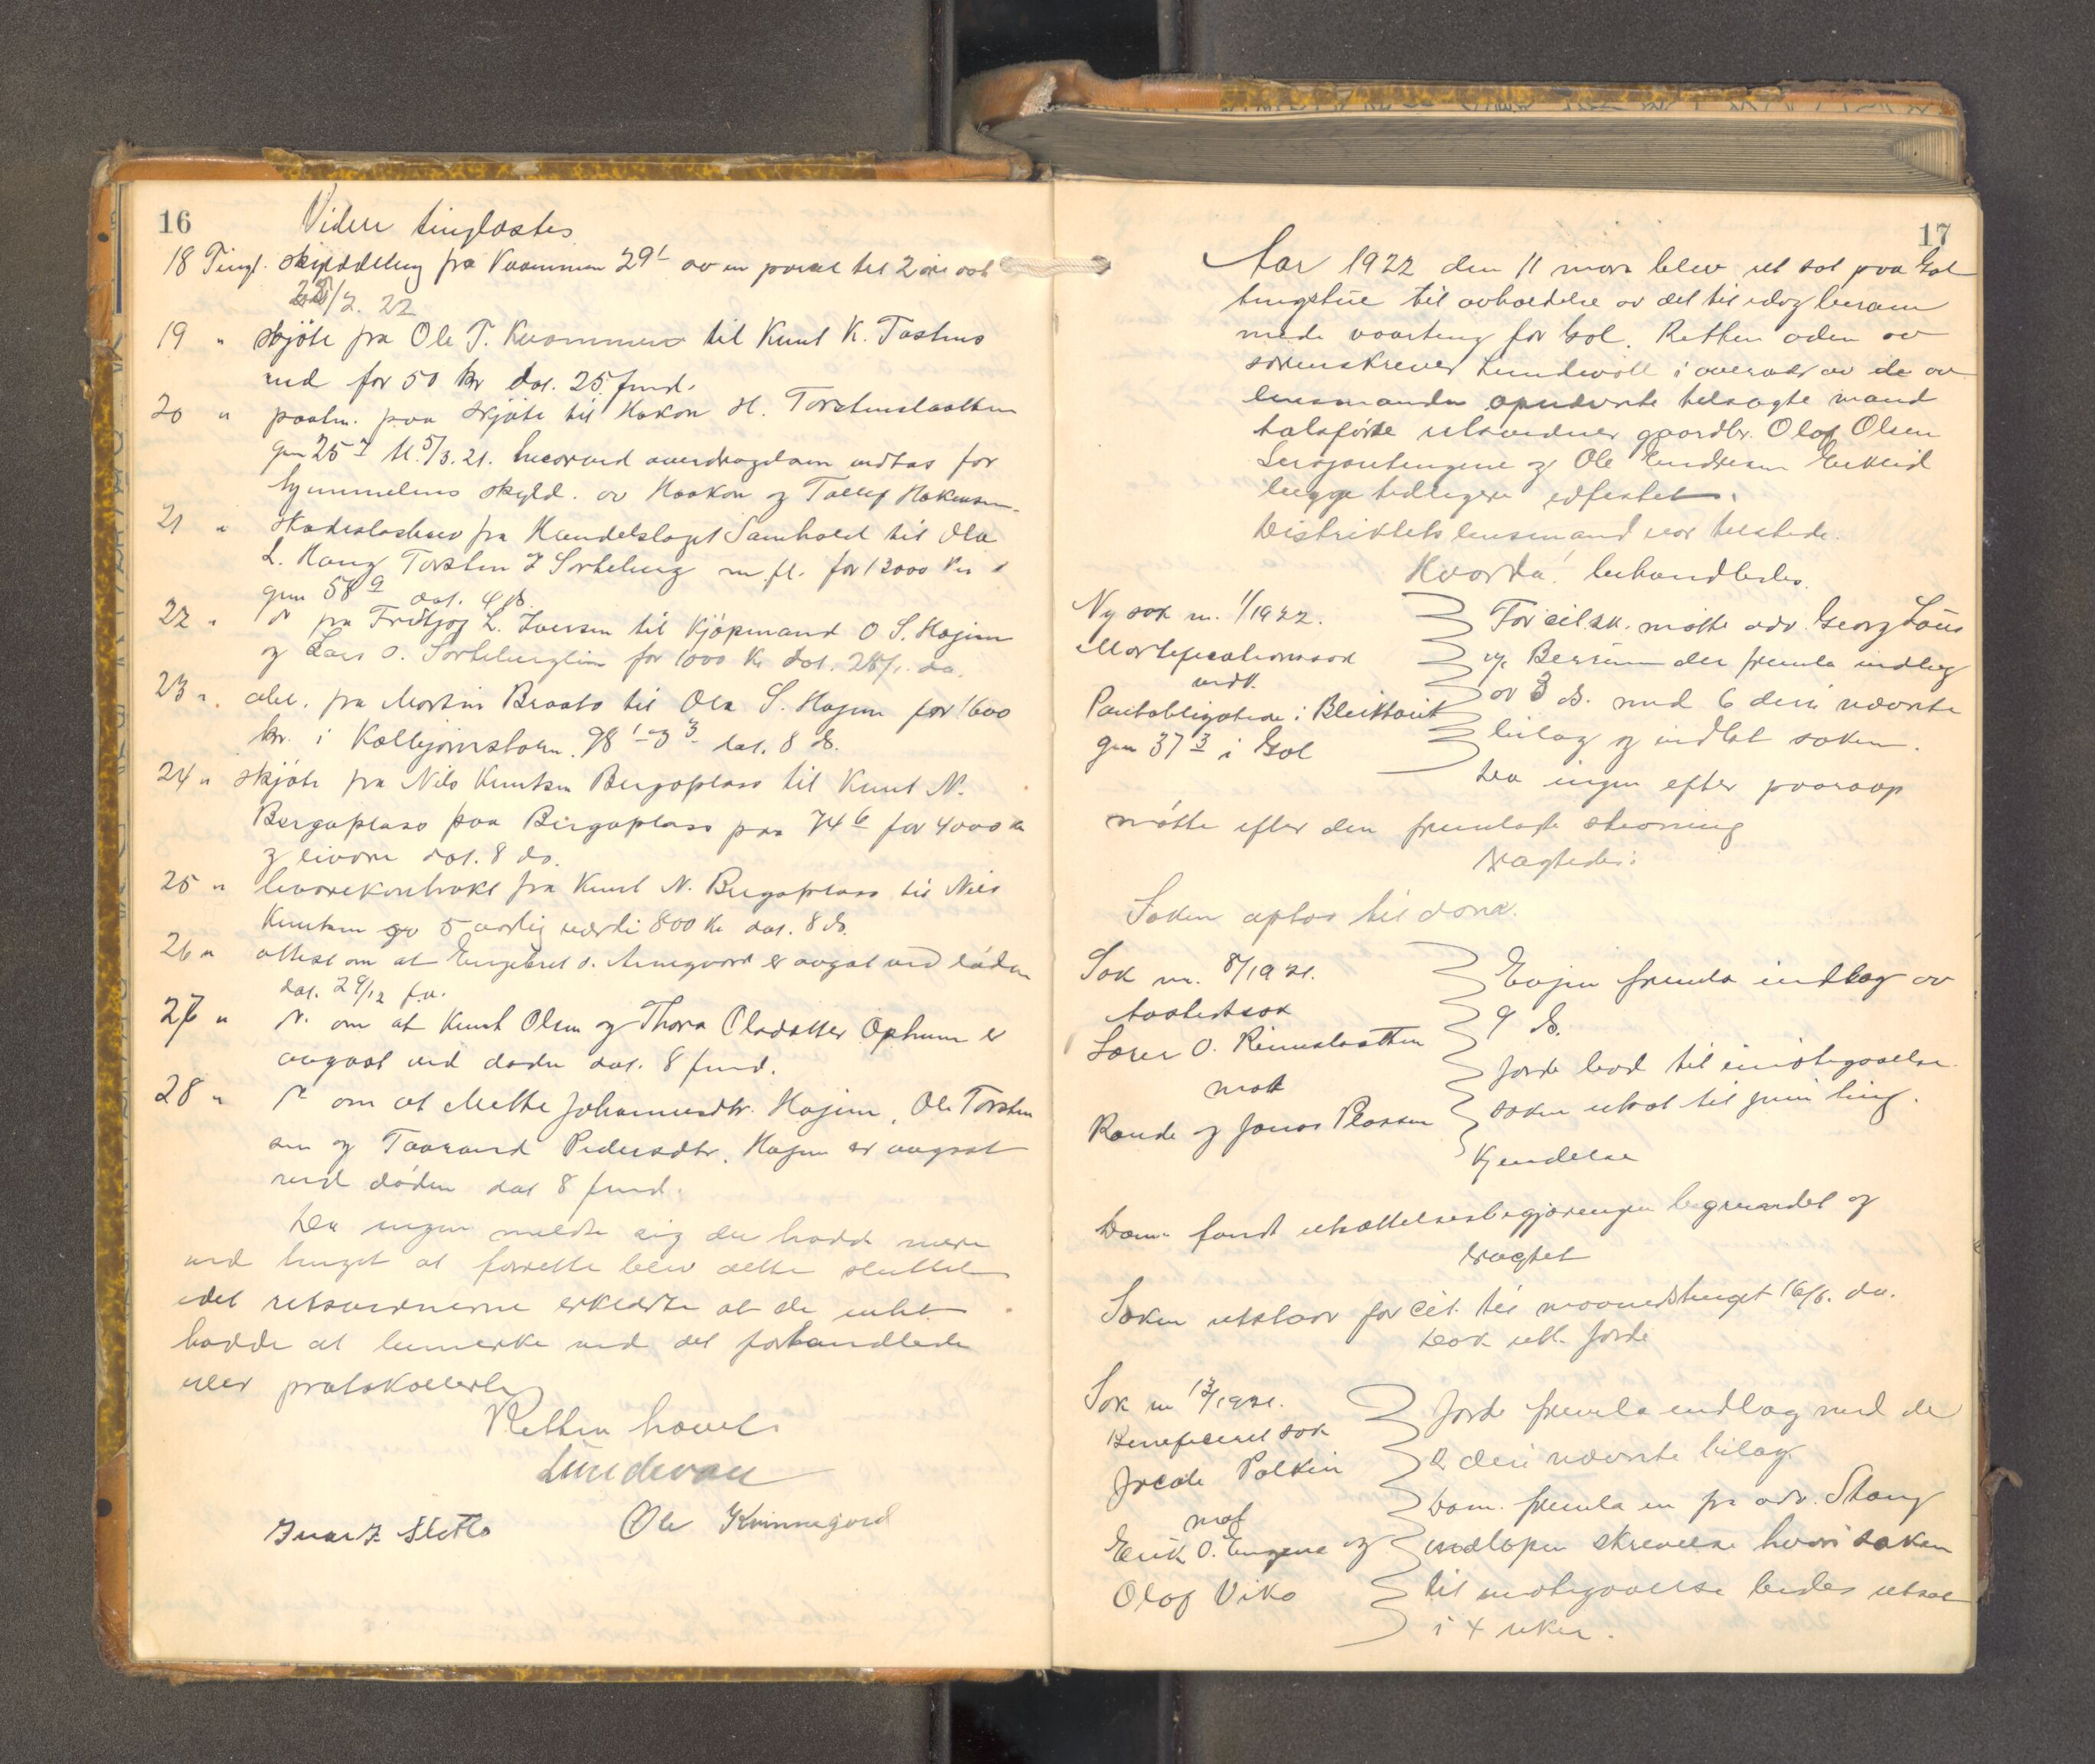 16
Videre tinglæstes
18 Tingl. skylddeling fra Kvammen 29¹ av en parcel til 2 øre dat
25/2. 22
19 " skjöte fra Ole T. Kvammen til Knut K. Tostrus
rud for 50 kr dat. 25 fmd.
20 " paatn. paa skjöte til Hakon H. Torstenslaatten
gnr 25 tl. 5/3. 21. hvorved overdragelsen mottas for
hymmelens skyld. av Haakon og Tollef Hakensen.
21 " Skadesløsbrev fra Handelslaget Samhold til Ola
L. Haug Torsten T Sorteberg m. fl. for 12000 Kr i
gnr 58 dat. 9 ds.
22 " fra Fridtjog L. Iversen til Kjøpmand O S. Hagen
og Lars O. Sortebergliin for 1000 Kr dat. 28/1. da.
23 " obl. fra Martin Braato til Ola S. Hagen for 1600
kr. i Kolbjørnsholm. 98 ¹⁻³ dat. 8 ds.
24 " skjöte fra Nils Knutsen Bergaplass til Knut N.
Bergaplass paa Bergaplass gnr 74 ⁶ for 4000 kr
og livøre dat. 8 ds.
25 " livørekontrakt fra Knut N. Bergaplass til Nils
Knutsen 5 aarlig værdi 800 Kr dat. 8 ds.
26 " attest om at Engebret O. Arnegaard er avgaat ved døden
dat. 29/12 f.a.
27 " om at Knut Olsen og Thora Olsdatter Ophum er
avgaat ved døden dat. 8 fmd.
28 " om at Mette Johannesdtr. Hagen, Ole Torsten
sen og Taarand Pedersdtr. Hagen er avgaat
ved døden dat 8 fmd.
Da ingen meldte sig der hadde mere
ved tinget at forrette blev dette sluttet
idet retsvidnerne erklærte at de intet
hadde at bemerke ved det forhandlede
eller protokollerte
Retten hævet.
Lundevall
Ivar I. Sletto Ole Kvinnegard
17
Aar 1922 den 11 mars blev ret sat paa Gol
tingstue til avholdelse av det til idag beram
mede vaarting for Gol. Retten aden av
sorenskriver Lundevall i overvær av de av
lensmanden opnævnte tilsagte mand
talsførte retsvidner gaardbr. Olaf Olsen
Sersjantengene og Ole Endresen Eikleid
begge tidligere edfestet.
Distriktets lensmand var tilstede.
Hvorda! behandledes.
Ny sak nr. 1/1922.
Mortifikationssak
vedk.
Pantobligation i Bleiktveit
gnr 37 ³ i Gol
For cit.sk. møtte adv. Georg Lous
Bærum der fremla indlæg
av 3 ds. med 6 deri nævnte
bilag og indlot saken.
Da ingen efter paaraap
møtte efter den fremlagte stevning
Vagtedes:
Saken optas til dom.
Sak nr. 8/1921.
Aastedssak
Larer O. Rimeslaatten
mot
Rande og Jonas Plassen
Evjen fremla indlæg av
9 ds.
Jorde bad til imøtegaaelse
saken utsat til juni ting.
Kjendelse
Dom. fandt utsættelsesbegjæringen begrundet og
vagtet
Saken utstaar for cit. til maanedstinget 16/6. da.
Dok utl. Jorde
Sak nr 13/1921.
Beneficert sak
Jrede Polkin
mot
Erik O. Engene og
Olaf Viko
Jorde fremla indlæg med de
2 deri nævnte bilag
Dom. fremla en fra adv. Stang
indløpen skrivelse hvori saken
til imøtegaaelse bedes utsat
i 4 uker.